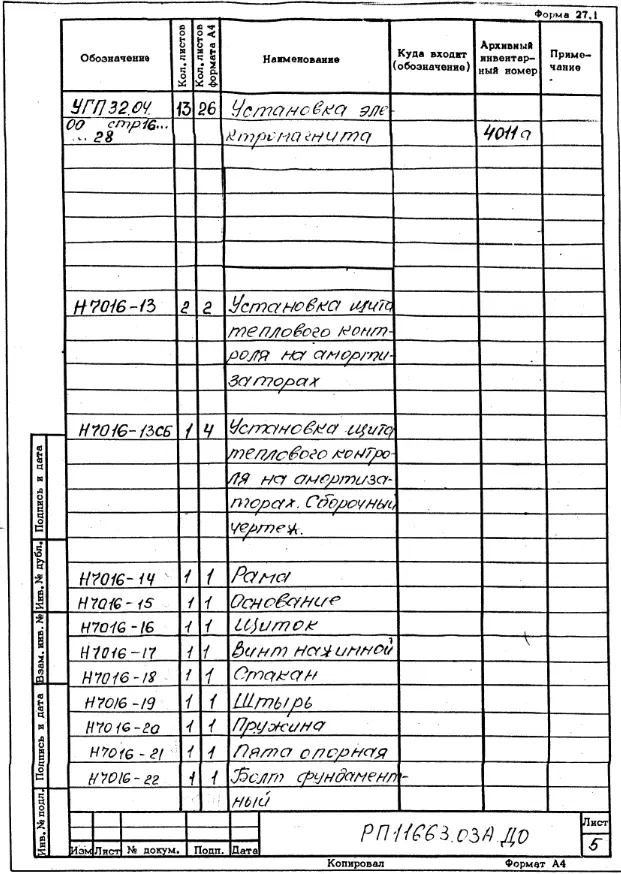 Форма 27.1
Обозначение Кол. листов Кол. листов формата А4 Наименование Куда входит (обозначение) Архивный инвентарный номер Примечание
УГП32.04. 13 26 Установка эле-
00 стр16...
... 28 ктромагнита 4011а
Н7016-13 2 2 Установка щита
теплового конт-
роля на аморти-
заторах
Н7016-13СБ 1 4 Установка щита
теплового контро-
ля на амортиза-
торах. Сборочный
чертеж.
Н7016-14 1 1 Рама
Н7016-15 1 1 Основание
Н7016-16 1 1 Щиток
Н7016-17 1 1 Винт нажимной
Н7016-18 1 1 Стакан
Н7016-19 1 1 Штырь
Н7016-20 1 1 Пружина
Н7016-21 1 1 Пята опорная
Н7016-22 1 1 Болт фундамент-
ный
Инв.№ подл. Подпись и дата Взам. инв. № Инв.№ дубл. Подпись и дата
РП11663.03А.Д0
Лист
5
Изм Лист № докум. Подп. Дата
Копировал Формат А4